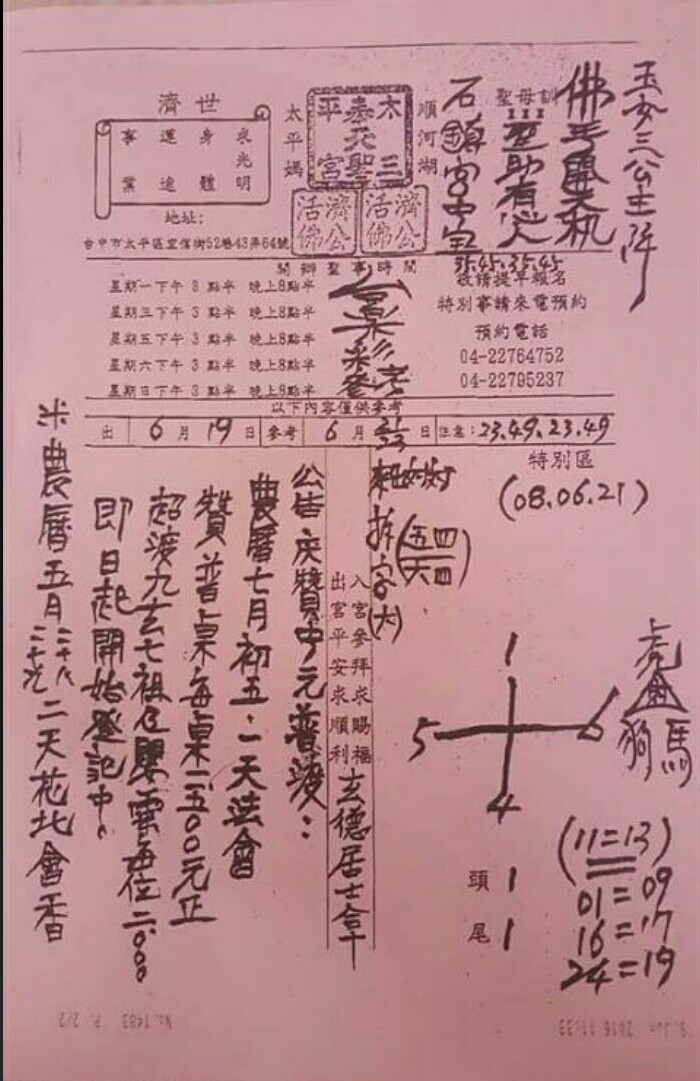 玉女三公主降
佛手開天机
聖母訓
互助有必
石鎮宮中宝
35.45.35.45
順河湖
太平奉天聖三宮
濟公活佛
濟公活佛
太平媽
濟世
求光明
身體
運途
事業
地址:
台中市太平區宜信街52巷43弄64號
開辦聖事時間
星期一下午3點半 晚上8點半
星期三下午3點半 晚上8點半
星期五下午3點半 晚上8點半
星期六下午3點半 晚上8點半
星期日下午3點半 晚上8點半
敬請提早報名
特別事請來電預約
預約電話
04-22764752
04-22795237
台彩
參考
以下內容僅供參考
出 6月19日 參考 6月21 22日 注意:23.49.23.49
特別區
(08.06.21)
拆字(大)
(四四
五六)
入宮參拜求賜福
出宮平安求順利
玄德居士合十
公告:庆贊中元普渡:
農曆七月初五.一天法會
贊普桌每桌一五00元正
超渡九玄七祖
每位二000
即日起開始登記中。
米農曆五月二十八 二十九二天花北會香
1
5
6
4
虎
狗
馬
頭 1
尾 1
(11=13)
01=09
16=17
24=19
No.1483 P. 2/2
9. Jun 2016 11:33